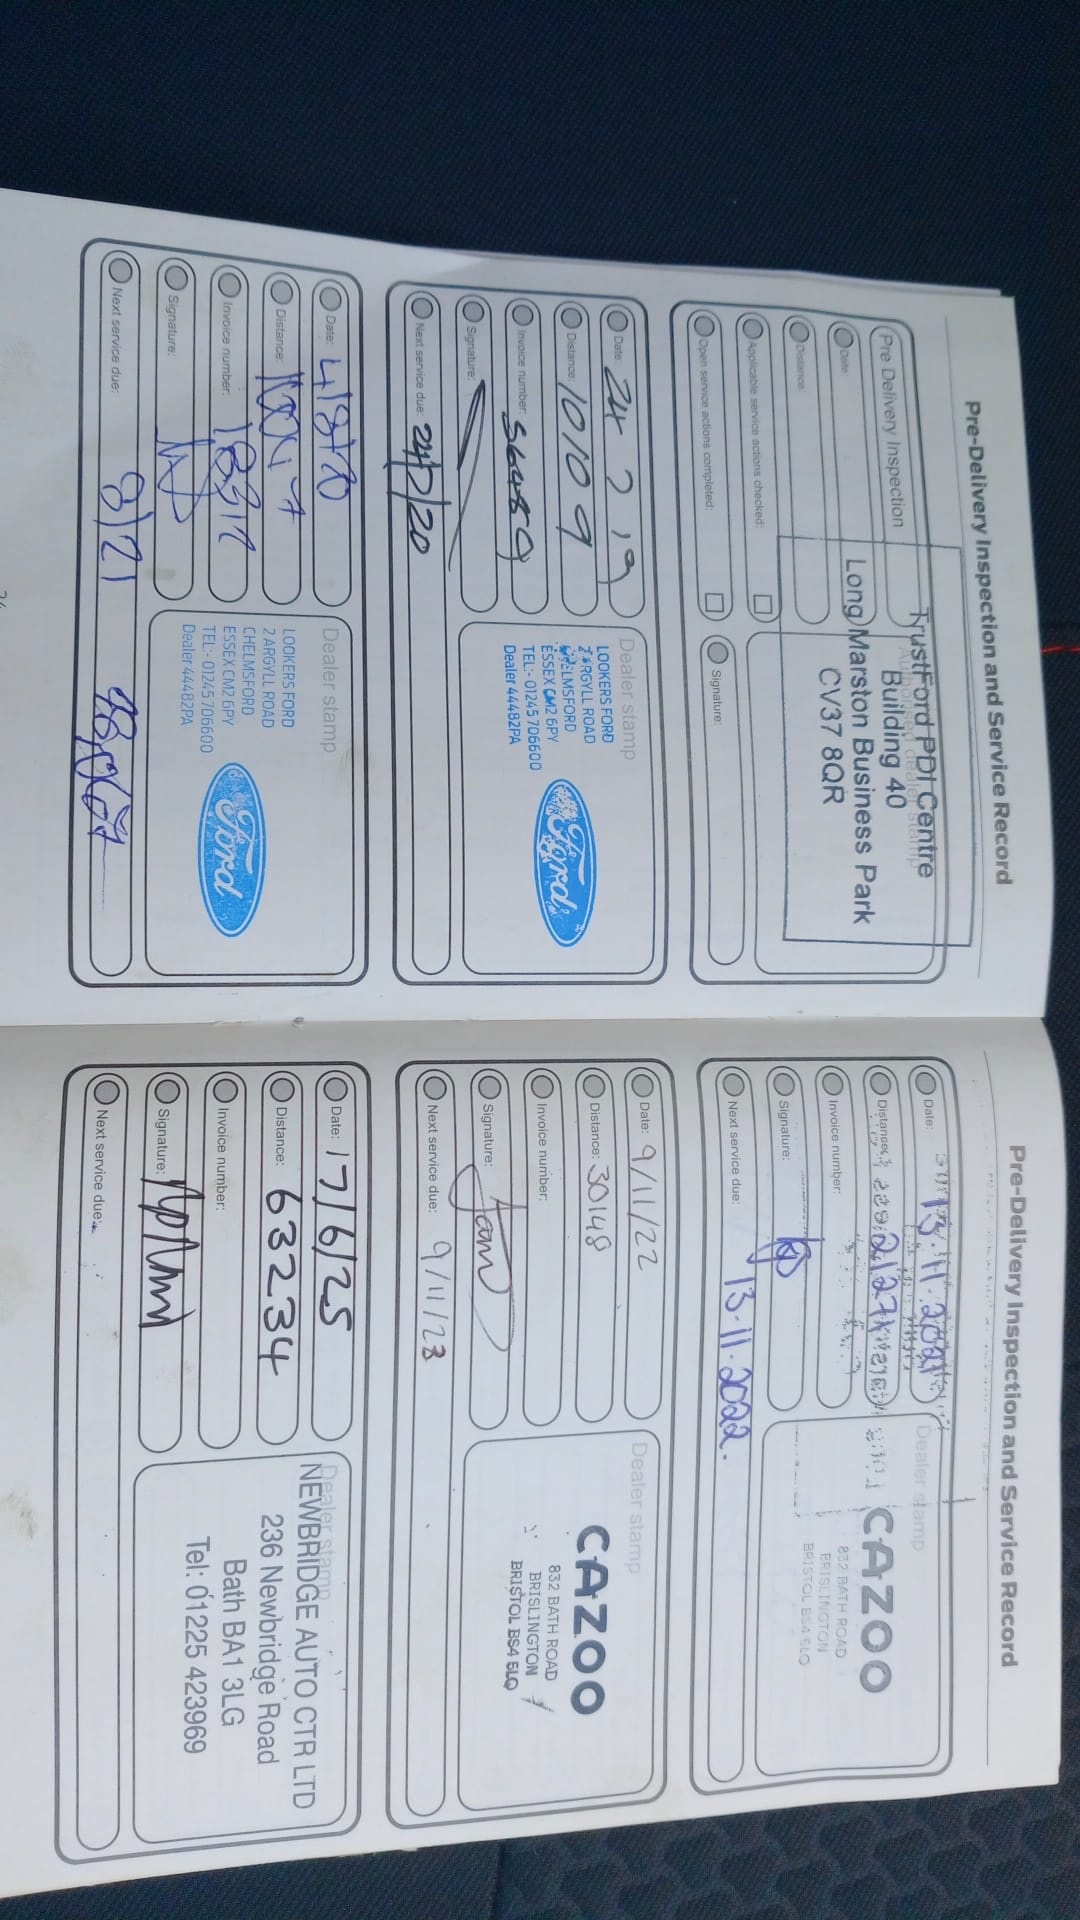 Pre-Delivery Inspection and Service Record
Pre Delivery Inspection
Date:
Distance:
Applicable service actions checked:
Open service actions completed:
Signature:
Authorised dealer stamp
TrustFord PDI Centre
Building 40
Long Marston Business Park
CV37 8QR
Date: 24 7 19
Distance: 10109
Invoice number: 56489
Signature:
Next service due: 24/7/20
Dealer stamp
LOOKERS FORD
2 ARGYLL ROAD
CHELMSFORD
ESSEX CM2 6PY
TEL:- 01245 706600
Dealer 44482PA
Ford
Date: 4/8/20
Distance:
Invoice number:
Signature:
Next service due: 8/21
Dealer stamp
LOOKERS FORD
2 ARGYLL ROAD
CHELMSFORD
ESSEX CM2 6PY
TEL:- 01245 706600
Dealer 44482PA
Ford
Pre-Delivery Inspection and Service Record
Date: 13.11.2021
Distance:
Invoice number:
Signature:
Next service due: 13.11.2022.
Dealer stamp
CAZOO
832 BATH ROAD
BRISLINGTON
BRISTOL BS4 5LQ
Date: 9/11/22
Distance: 30148
Invoice number:
Signature:
Next service due: 9/11/23
Dealer stamp
CAZOO
832 BATH ROAD
BRISLINGTON
BRISTOL BS4 5LQ
Date: 17/6/25
Distance: 63234
Invoice number:
Signature:
Next service due:
Dealer stamp
NEWBRIDGE AUTO CTR LTD
236 Newbridge Road
Bath BA1 3LG
Tel: 01225 423969